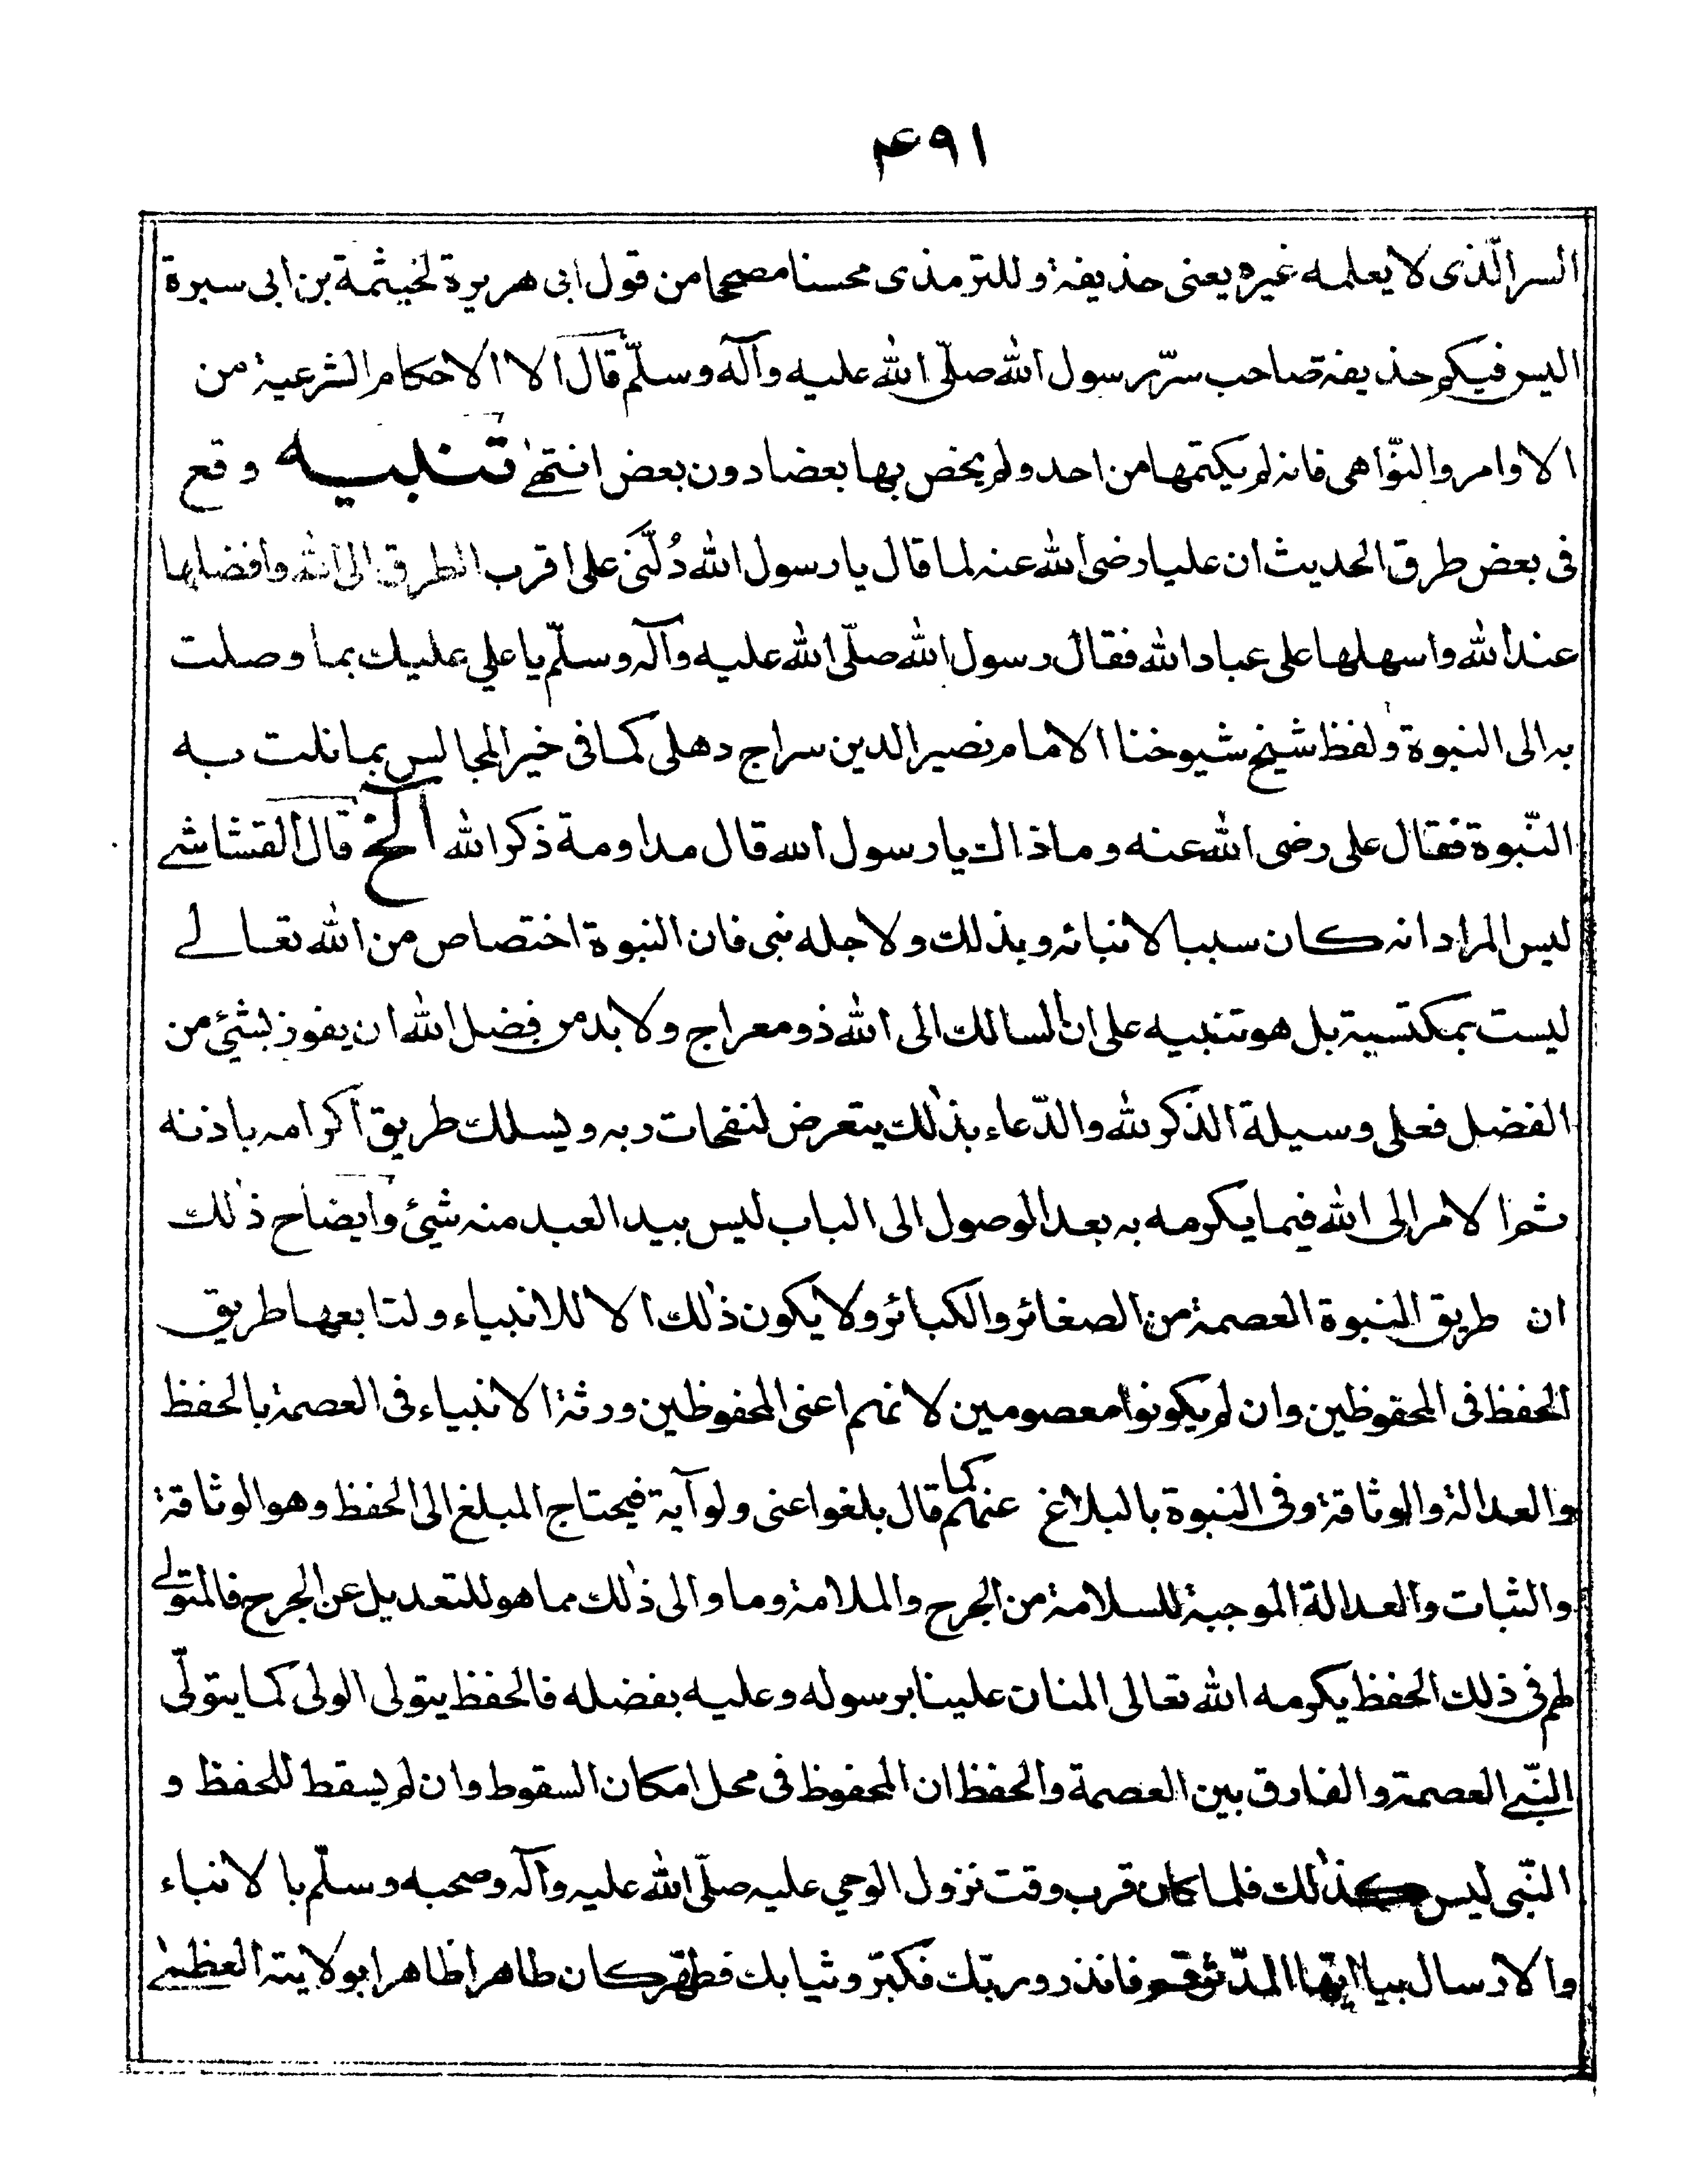 ۴۹۱
السر الّذى لا يعلمه غيره يعنى حذيفة وللترمذى محسنا مصححا من قول ابى هريرة لخيثمة بن ابى سبرة
اليس فيكم حذيفة صاحب سرّ رسول الله صلّى الله عليه وآله وسلّم قال الا الاحكام الشرعية من
الاوامر والنوّاهى فانه لم يكتمها من احد ولم يخص بها بعضا دون بعض انتهىٰ تنبيه وقع
فى بعض طرق الحديث ان عليا رضى الله عنه لما قال يا رسول الله دُلّنى على اقرب الطرق الى الله وافضلها
عند الله واسهلها على عباد الله فقال رسول الله صلّى الله عليه وآله وسلّم يا علي عليك بما وصلت
به الى النبوة ولفظ شيخ شيوخنا الامام نصير الدين سراج دهلى كما فى خير المجالس بما نلت به
النّبوة فقال على رضى الله عنه وما ذاك يا رسول الله قال مداومة ذكر الله الخ قال القشاشے
ليس المراد انه كان سببا لانبائه وبذلك ولاجله نبى فان النبوة اختصاص من الله تعالے
ليست بمكتسبة بل هو تنبيه على ان السالك الى الله ذو معراج ولا بد من فضل الله ان يفوز بشئ من
الفضل فعلى وسيلة الذكر لله والدّعاء بذٰلك يتعرض لنفحات ربه ويسلك طريق اكرامه باذنه
ثم الامر الى الله فيما يكرمه به بعد الوصول الى الباب ليس بيد العبد منه شئ وايضاح ذٰلك
ان طريق النبوة العصمة من الصغائر والكبائر ولا يكون ذٰلك الا للانبياء ولتابعها طريق
الحفظ فى المحفوظين وان لم يكونوا معصومين لانهم اعنى المحفوظين ورثة الانبياء فى العصمة بالحفظ
والعدالة والوثاقة وفى النبوة بالبلاغ عنهم كما قال بلغوا عنى ولو آية فيحتاج المبلغ الى الحفظ وهو الوثاقة
والثبات والعدالة الموجبة للسلامة من الجرح والملامة وما والى ذٰلك مما هو للتعديل عن الجرح فالمتولے
لهم فى ذلك الحفظ يكرمه الله تعالى المنان علينا برسوله وعليه بفضله فالحفظ يتولى الولى كما يتولّى
النّبے العصمة والفارق بين العصمة والحفظ ان المحفوظ فى محل امكان السقوط وان لم يسقط للحفظ و
النّبى ليس كذٰلك فلما كان قرب وقت نزول الوحي عليه صلّى الله عليه وآله وصحبه وسلّم بالانباء
والارسال بيا ايّها المدّثر قم فانذر وربّك فكبّر وثيابك فطهّر كان طاهرا ظاهرا بولايته العظمىٰ